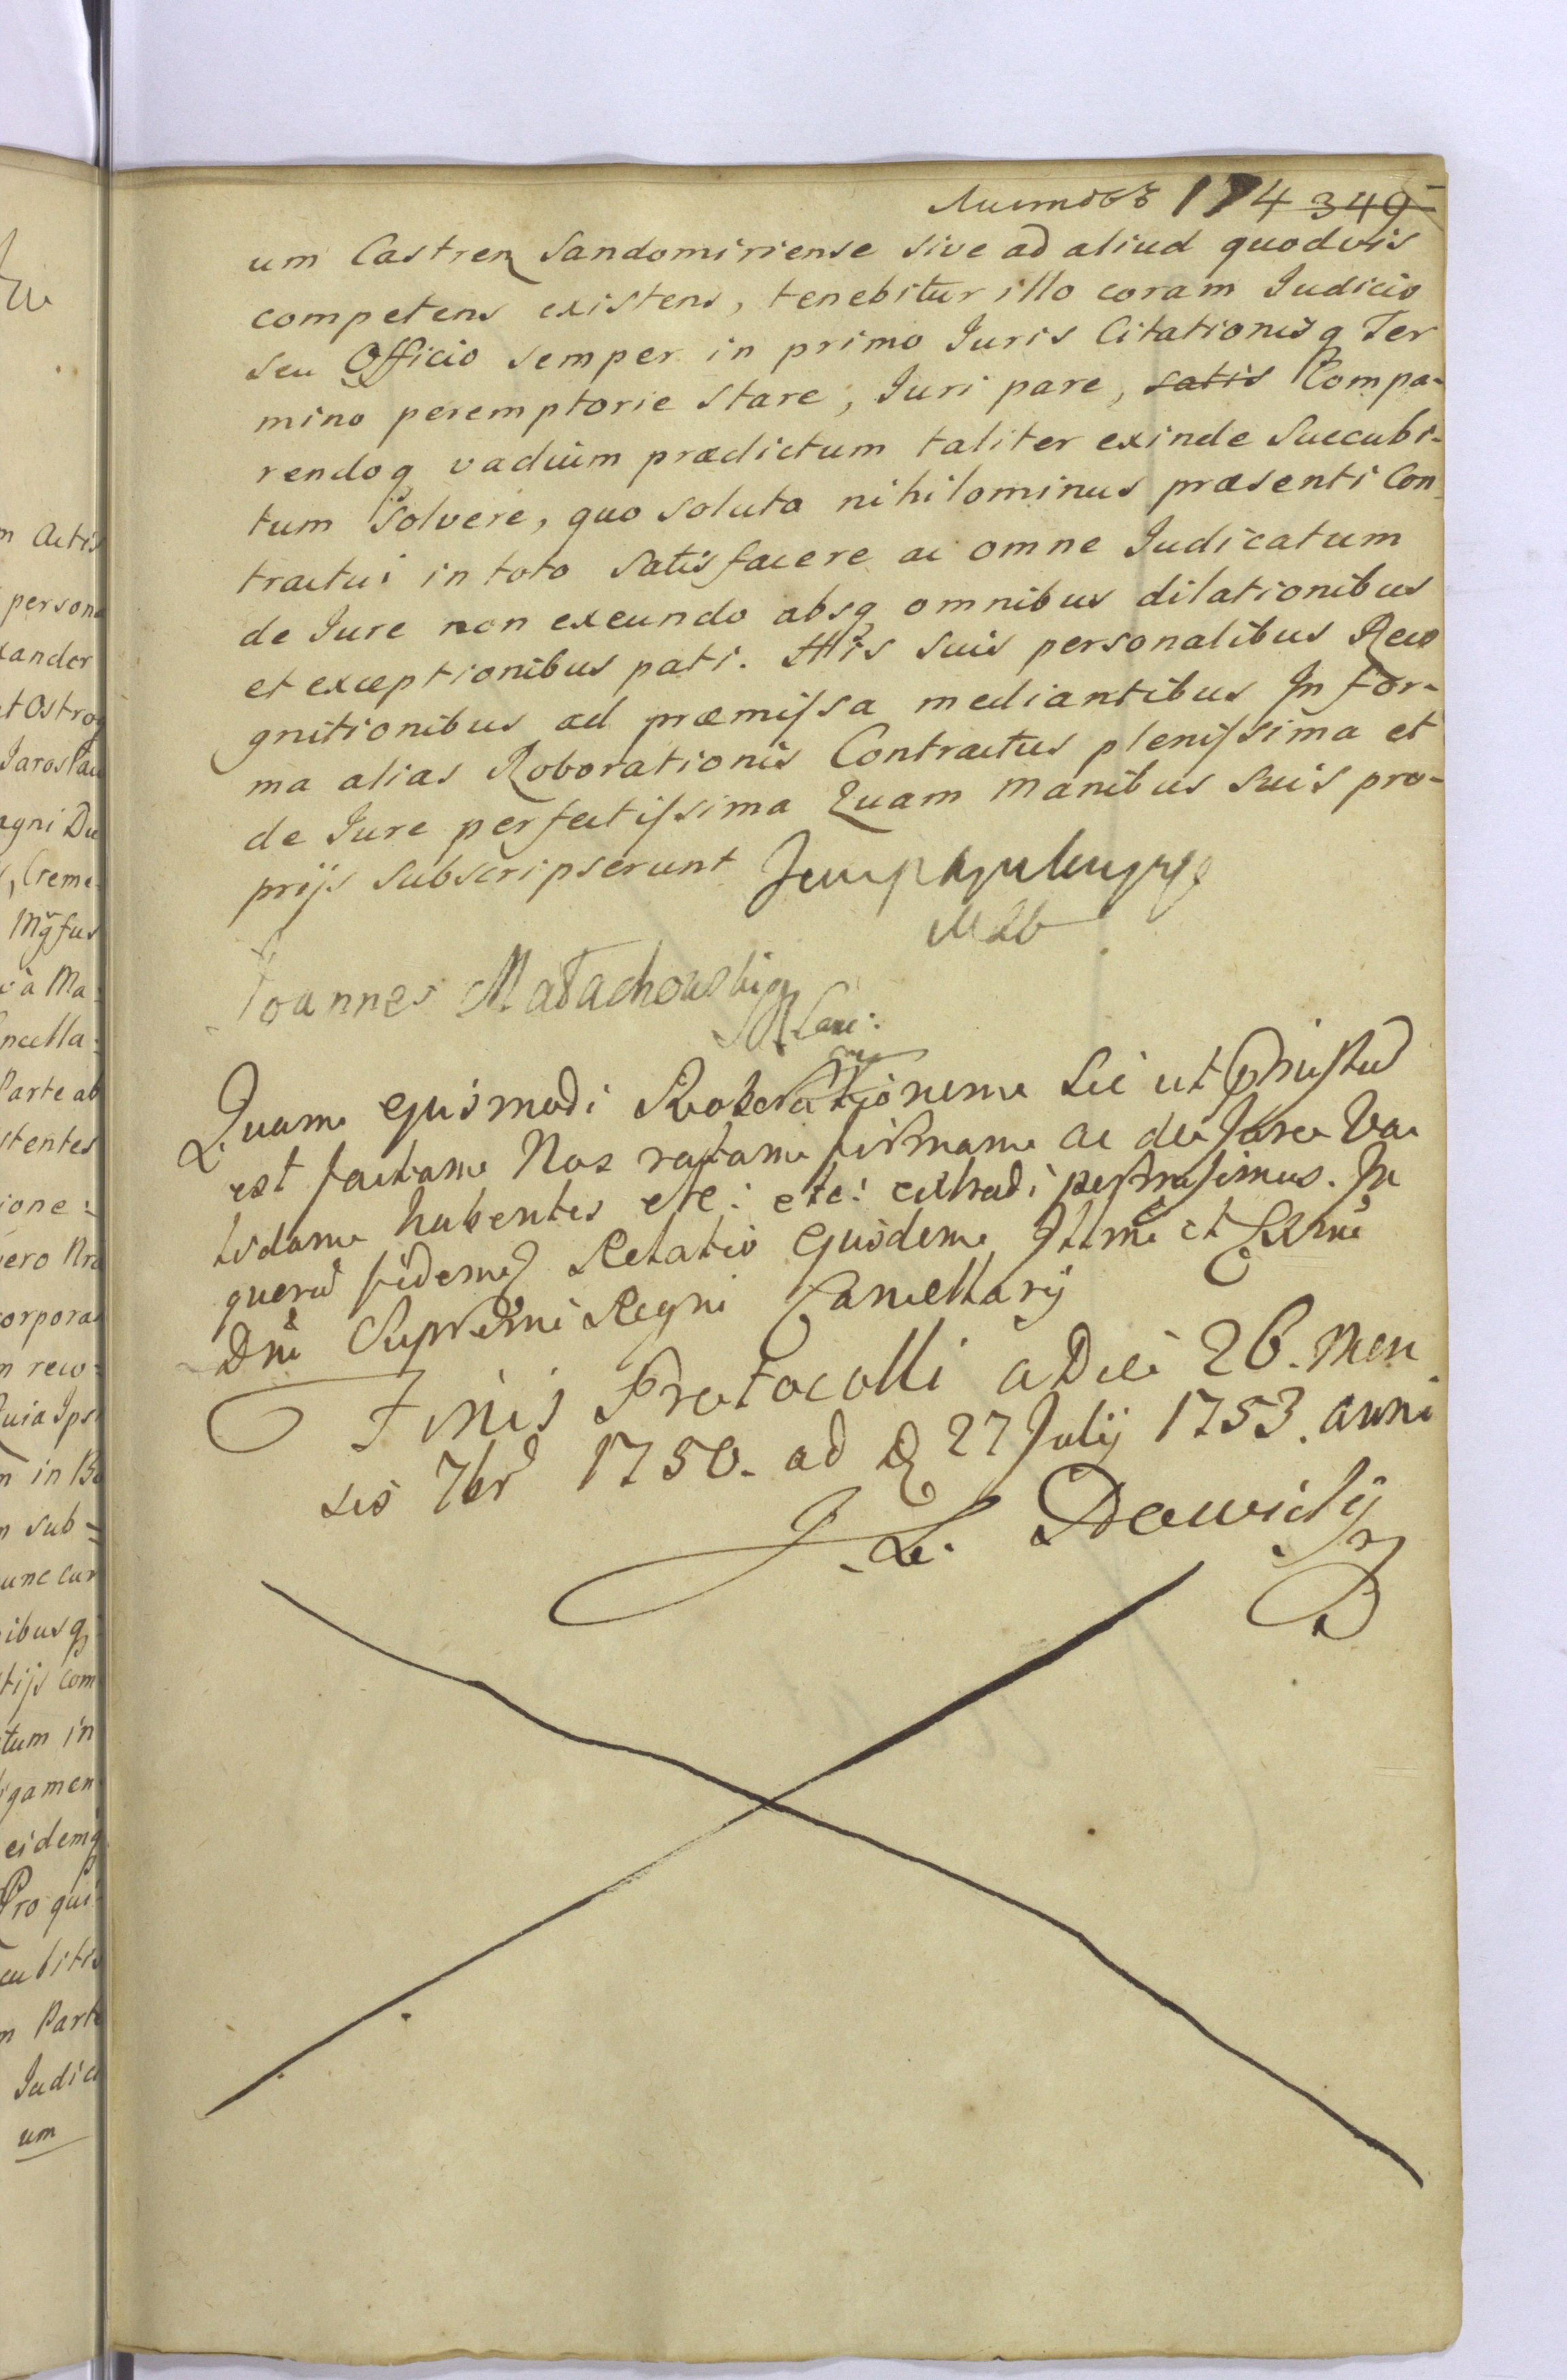 Листовъ 174 349
um Castren Sandomiriense sive ad aliud quodvis
competens existens, tenebitur illo coram Iudicio
seu Officio semper in primo Iuris Citationisq Ter
mino peremptorie stare, Iuri pare, satis Compa-
rendoq vadium praedictum taliter exinde succubi-
tum solvere, quo soluto nihilominus praesenti Con
tractui in toto satisfacere ac omne Iudicatum
de Iure non exeundo absq omnibus dilationibus
et exceptionibus pati. His suis personalibus Reco
gnitionibus ad praemissa mediantibus In for-
ma alias Roborationis Contractus plenissima et
de Iure perfectissima Quam manibus suis pro-
prijs subscripserunt
Joannes Małachowski
Quam ejusmodi Roborationem sic ut
est factam Nos ratam firmam ac de Jure Va
lidam habentes etc: etc: extradi permisimus. In
quorū fidem Relatio Ejusdem Illmi et Exmi
Dni Supremi Regni Cancellarij
Finis Protocolli a Die 26. Men
sis 7br 1750. ad D 27 Julij 1753. anni
m Actis
person
xander
et Ostrog
Jaroslau
agni Du
, Creme
à Ma:
ncella:
Parte ab
stentes
ione:
vero Nra
corpora
m reco:
Quia Ips
m in Bo
m sub-
unc cur
ibusq
tijs com
tum in
igamen
eidemq
Pro qui
cubitis
m Parte
Iudici
um